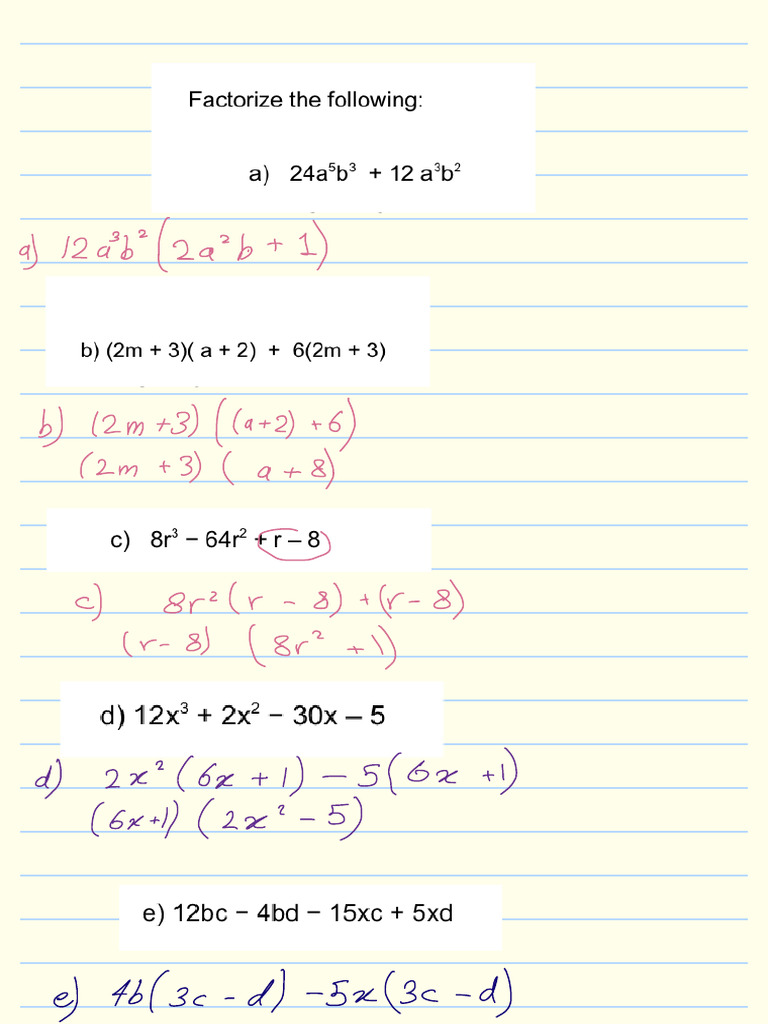 Factorize the following:
a) 24a⁵b³ + 12 a³b²
a) 12a³b² (2a²b + 1)
b) (2m + 3)( a + 2) + 6(2m + 3)
b) (2m +3) ((a+2) +6)
(2m +3) ( a + 8)
c) 8r³ − 64r² + r – 8
c) 8r² (r - 8) + (r - 8)
(r - 8) (8r² + 1)
d) 12x³ + 2x² − 30x – 5
d) 2x² (6x + 1) - 5 (6x +1)
(6x+1) (2x² - 5)
e) 12bc − 4bd − 15xc + 5xd
e) 4b(3c - d) -5x(3c -d)